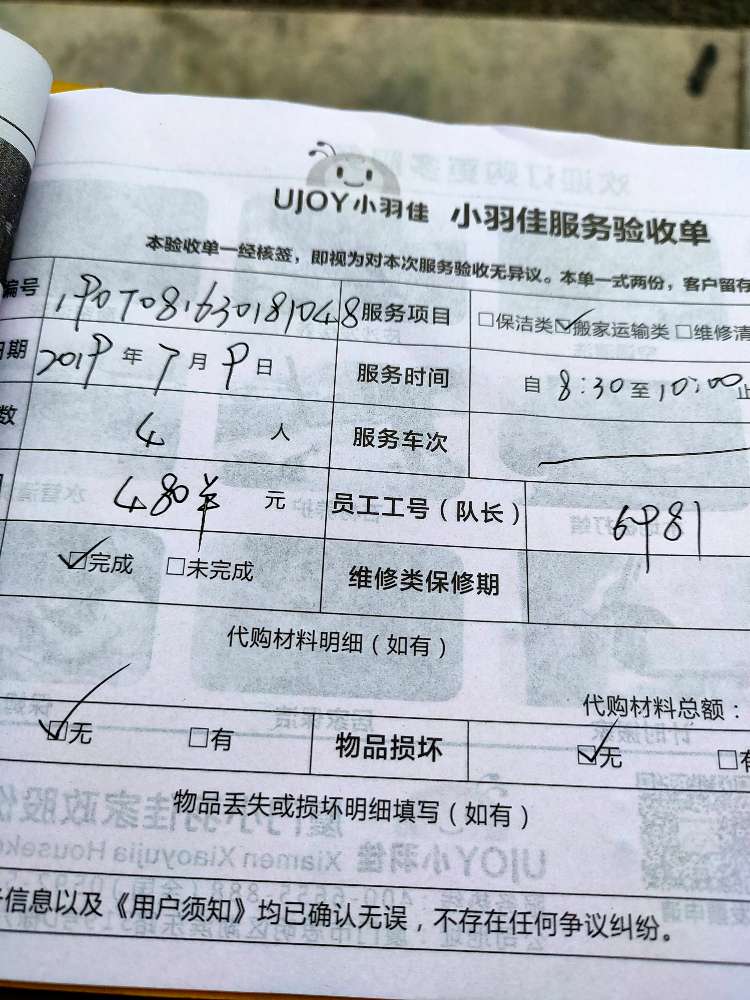 UJOY小羽佳 小羽佳服务验收单
本验收单一经核签，即视为对本次服务验收无异议。本单一式两份，客户留存
编号 服务项目 □保洁类 ☑搬家运输类 □维修清
日期 2019年7月9日 服务时间 自 8:30 至 10:00 止
数 4 人 服务车次
480 元 员工工号（队长） 6981
☑完成 □未完成 维修类保修期
代购材料明细（如有）
代购材料总额：
☑无 □有 物品损坏 ☑无 □有
物品丢失或损坏明细填写（如有）
信息以及《用户须知》均已确认无误，不存在任何争议纠纷。